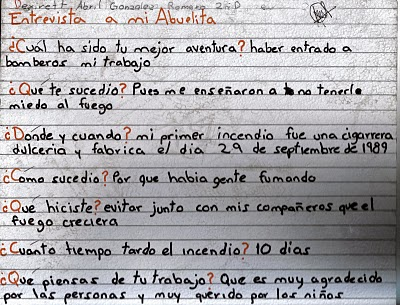 Desirett Abril Gonzalez Romero 2º D
Entrevista a mi Abuelita
¿Cuál ha sido tu mejor aventura? haber entrado a
bomberos mi trabajo
¿Que te sucedio? Pues me enseñaron a no tenerle
miedo al fuego
¿Donde y cuando? mi primer incendio fue una cigarrera
dulceria y fabrica el dia 29 de septiembre de 1989
¿Como sucedio? Por que habia gente fumando
¿Que hiciste? evitar junto con mis compañeros que el
fuego creciera
¿Cuanto tiempo tardo el incendio? 10 dias
¿Que piensas de tu trabajo? Que es muy agradecido
por las personas y muy querido por los niños